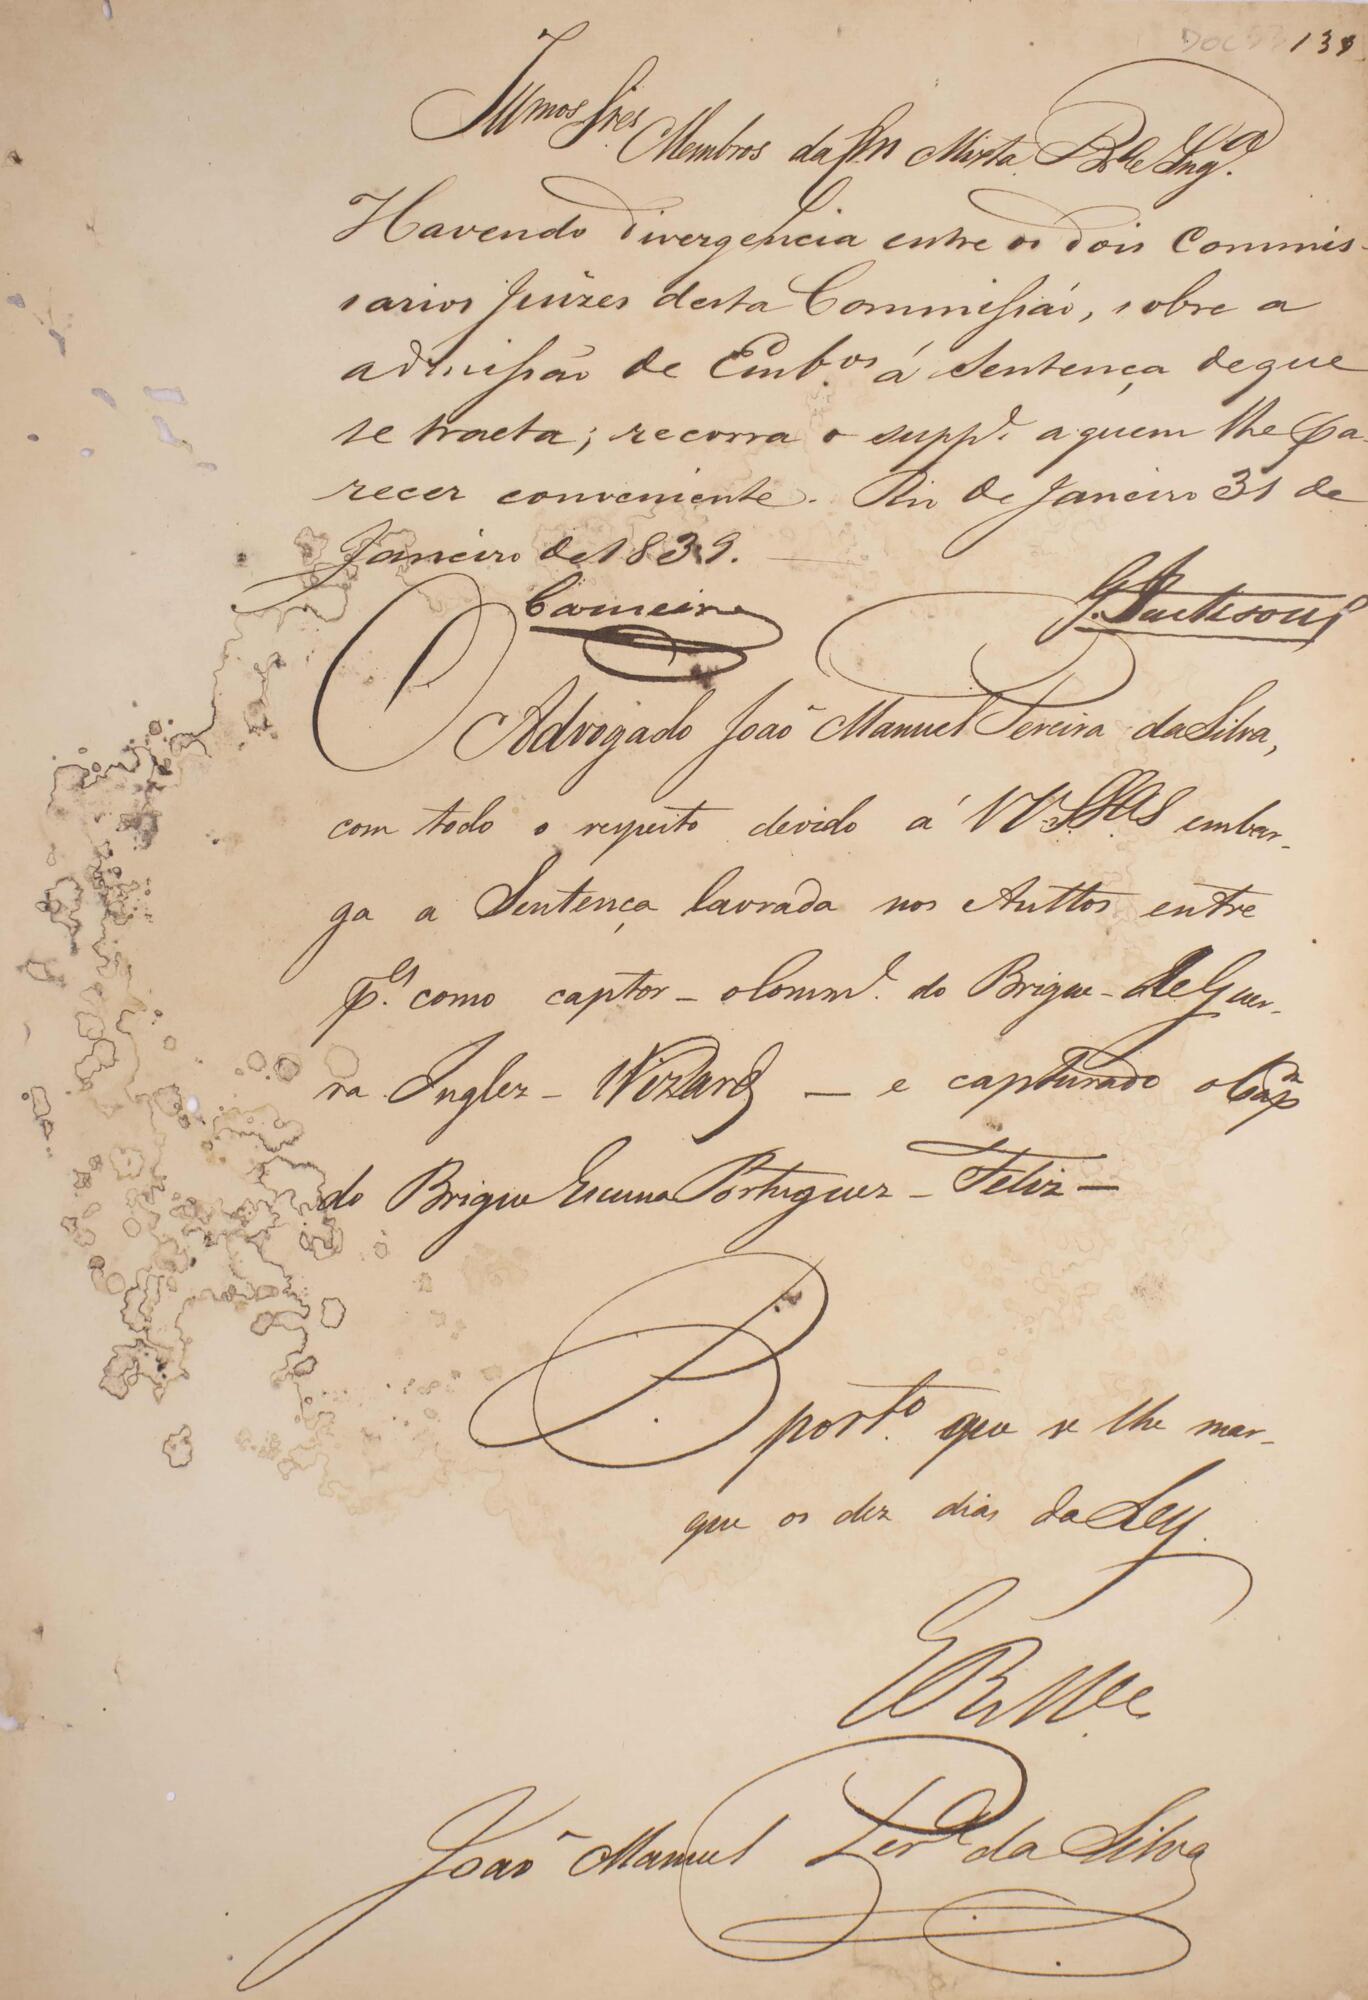 DOC 139
Illmos Snres Membros da Com Mixta Bra e Inga.
Havendo divergencia entre os dois Commis-
sarios Juizes desta Commissão, sobre a
admissão de Embos. á Sentença de que
se tracta; recorra o suppe. a quem lhe pa-
recer conveniente. Rio de Janeiro 31 de
Janeiro de 1839.
Carneiro G. Jackson
O Advogado João Manuel Pereira da Silva,
com todo o respeito devido á VV. SSas embar-
ga a Sentença lavrada nos Auttos entre
pes. como captor - o Comme. do Brigue - de Guer-
ra Inglez - Wizard - e capturado o Capm
do Brigue Escuna Portuguez - Feliz -
P porto. que se lhe mar-
que os dez dias da Ley.
E R Mce
João Manuel Pera da Silva